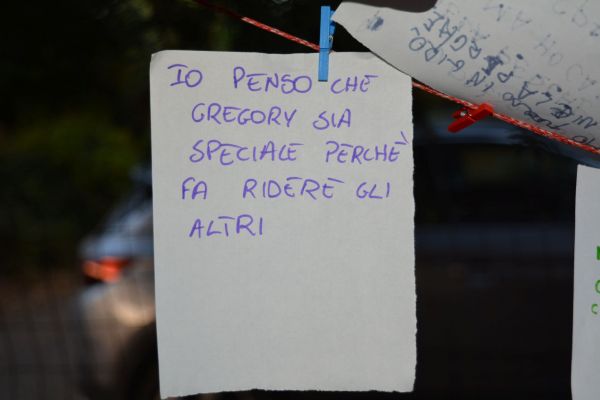 IO PENSO CHE
GREGORY SIA
SPECIALE PERCHÈ
FA RIDERE GLI
ALTRI